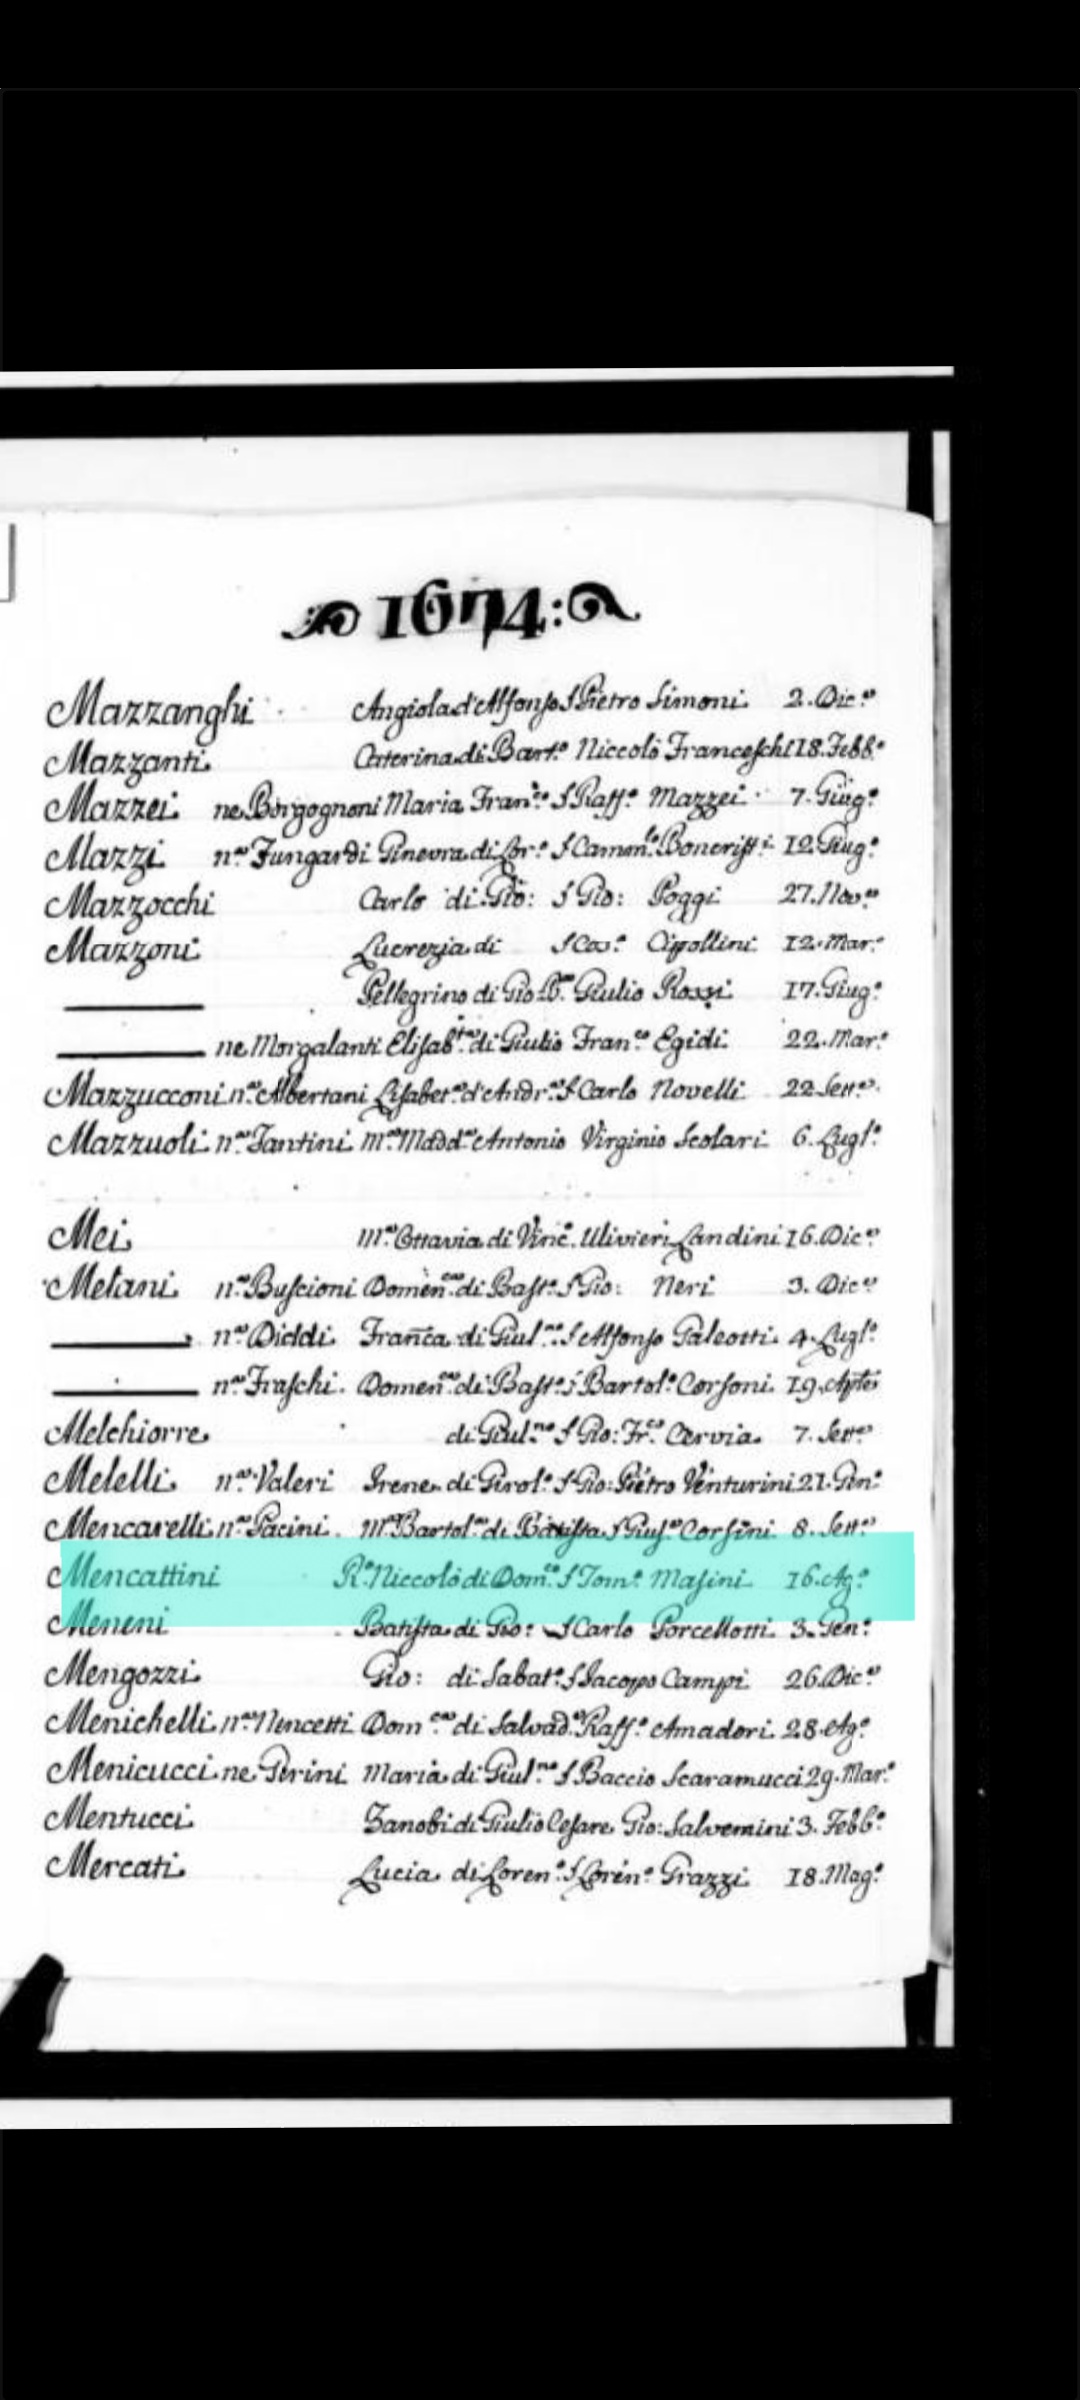 1674:
Mazzanghi Angiola d'Alfonso S Pietro Simoni 2. Dic.e
Mazzanti Caterina di Bart.o Niccolò Franceschi 18. Febb.o
Mazzei ne Borgognoni Maria Fran.ca S Raff.o Mazzei 7. Giug.o
Mazzi n.a Fungardi Ginevra di Lor.o S Camm.lo 12. Giug.o
Mazzocchi Carlo di Gio: S Gio: Poggi 27. Nov.e
Mazzoni Lucrezia di S Cos.o Cipollini 12. Mar.o
Pellegrino di Gio. B.a Giulio Rossi 17. Giug.o
ne Morgalanti Elisab.ta di Giulio Fran.co Egidi 22. Mar.o
Mazzucconi n.a Albertani Lisabet.a d'Andr.a S Carlo Novelli 22 Sett.e
Mazzuoli n.a Fantini M.a Madd.a Antonio Virginio Scolari 6. Lugl.o
Mei M.a Ottavia di Vinc.o Ulivieri Landini 16. Dic.e
Melani n.a Buscioni Domen.ca di Bast.o S Gio: Neri 3. Dic.e
n.a Diddi Fran̄ca di Giul.no S Alfonso Galeotti 4. Lugl.o
n.a Fraschi Domen.ca di Bast.o S Bartol.o Corsoni 19.
Melchiorre di Giul.no S Gio: Fr.co Cervia 7. Sett.e
Melelli n.a Valeri Irene di Girol.o S Gio: Pietro Venturini 21. Gen.o
Mencarelli n.a Pacini M.a Bartol.a di Batista S Gius.o Corsini 8. Sett.e
Mencattini R.o Niccolò di Dom.co S Tom.o Masini 16. Ag.o
Meneni Batista di Gio: S Carlo Porcellotti 3. Gen.o
Mengozzi Gio: di Sabat.o S Jacopo Campi 26. Dic.e
Menichelli n.a Nencetti Dom.ca di Salvad.e Raff.o Amadori 28. Ag.o
Menicucci ne Perini Maria di Giul.no S Baccio Scaramucci 29. Mar.o
Mentucci Zanobi di Giulio Cesare Gio: Salvemini 3. Febb.o
Mercati Lucia di Loren.o S Loren.o Grazzi 18. Mag.o